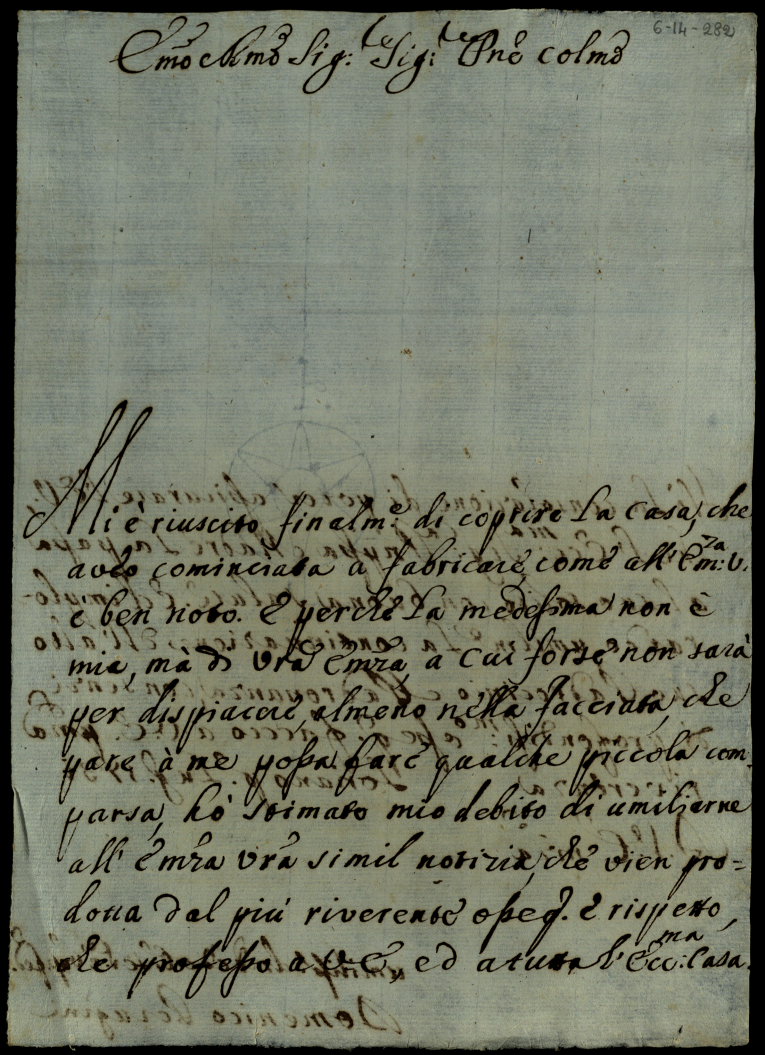 6-14-282
Emõ e Rmõ Sig:re Sig:re Pnẽ colmõ
Mi è riuscito finalm:e di coprire la casa, che
aveo cominciata a fabricare, come all'Em:za V.
è ben noto. E perchè la medesima non è
mia, mà di Vrã Emzã, a cui forse non sarà
per dispiacere, almeno nella facciata, che
pare à me possa fare qualche piccola com-
parsa, hò stimato mio debito di umiliarne
all'Emzã Vrã simil notizia, che vien pro=
dotta dal più riverente osseq. e rispetto,
che professo a V.E., ed a tutta l'Ecc:ma Casa.